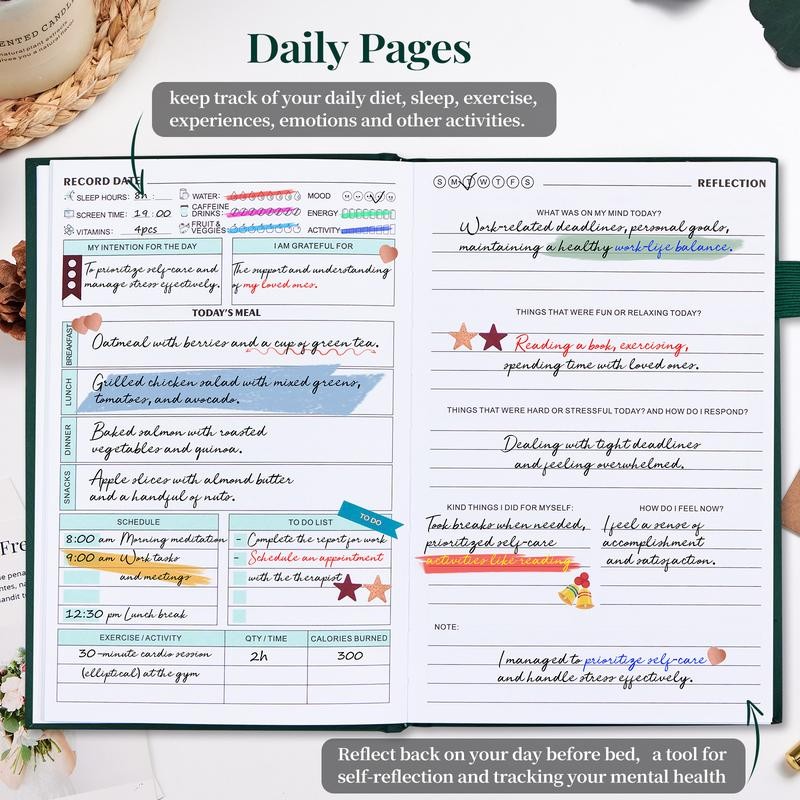 ENTED CANDL
Daily Pages
keep track of your daily diet, sleep, exercise,
experiences, emotions and other activities.
RECORD DATE
SLEEP HOURS: 8h
WATER:
MOOD
SCREEN TIME: 19:00
CAFFEINE
DRINKS:
ENERGY
VITAMINS: 4pcs
FRUIT &
VEGGIES
ACTIVITY
MY INTENTION FOR THE DAY
I AM GRATEFUL FOR
To prioritize self-care and
manage stress effectively.
The support and understanding
of my loved ones.
TODAY'S MEAL
BREAKFAST
Oatmeal with berries and a cup of green tea.
LUNCH
Grilled chicken salad with mixed greens,
tomatoes, and avocado.
DINNER
Baked salmon with roasted
vegetables and quinoa.
SNACKS
Apple slices with almond butter
and a handful of nuts.
SCHEDULE
8:00 am Morning meditation
9:00 am Work tasks
and meetings
12:30 pm Lunch break
TO DO LIST
TO DO
- Complete the report for work
- Schedule an appointment
with the therapist
EXERCISE / ACTIVITY QTY / TIME CALORIES BURNED
30-minute cardio session 2h 300
(elliptical) at the gym
S M T W T F S
REFLECTION
WHAT WAS ON MY MIND TODAY?
Work-related deadlines, personal goals,
maintaining a healthy work-life balance.
THINGS THAT WERE FUN OR RELAXING TODAY?
Reading a book, exercising,
spending time with loved ones.
THINGS THAT WERE HARD OR STRESSFUL TODAY? AND HOW DO I RESPOND?
Dealing with tight deadlines
and feeling overwhelmed.
KIND THINGS I DID FOR MYSELF:
Took breaks when needed,
prioritized self-care
activities like reading
HOW DO I FEEL NOW?
I feel a sense of
accomplishment
and satisfaction.
NOTE:
I managed to prioritize self-care
and handle stress effectively.
Reflect back on your day before bed, a tool for
self-reflection and tracking your mental health